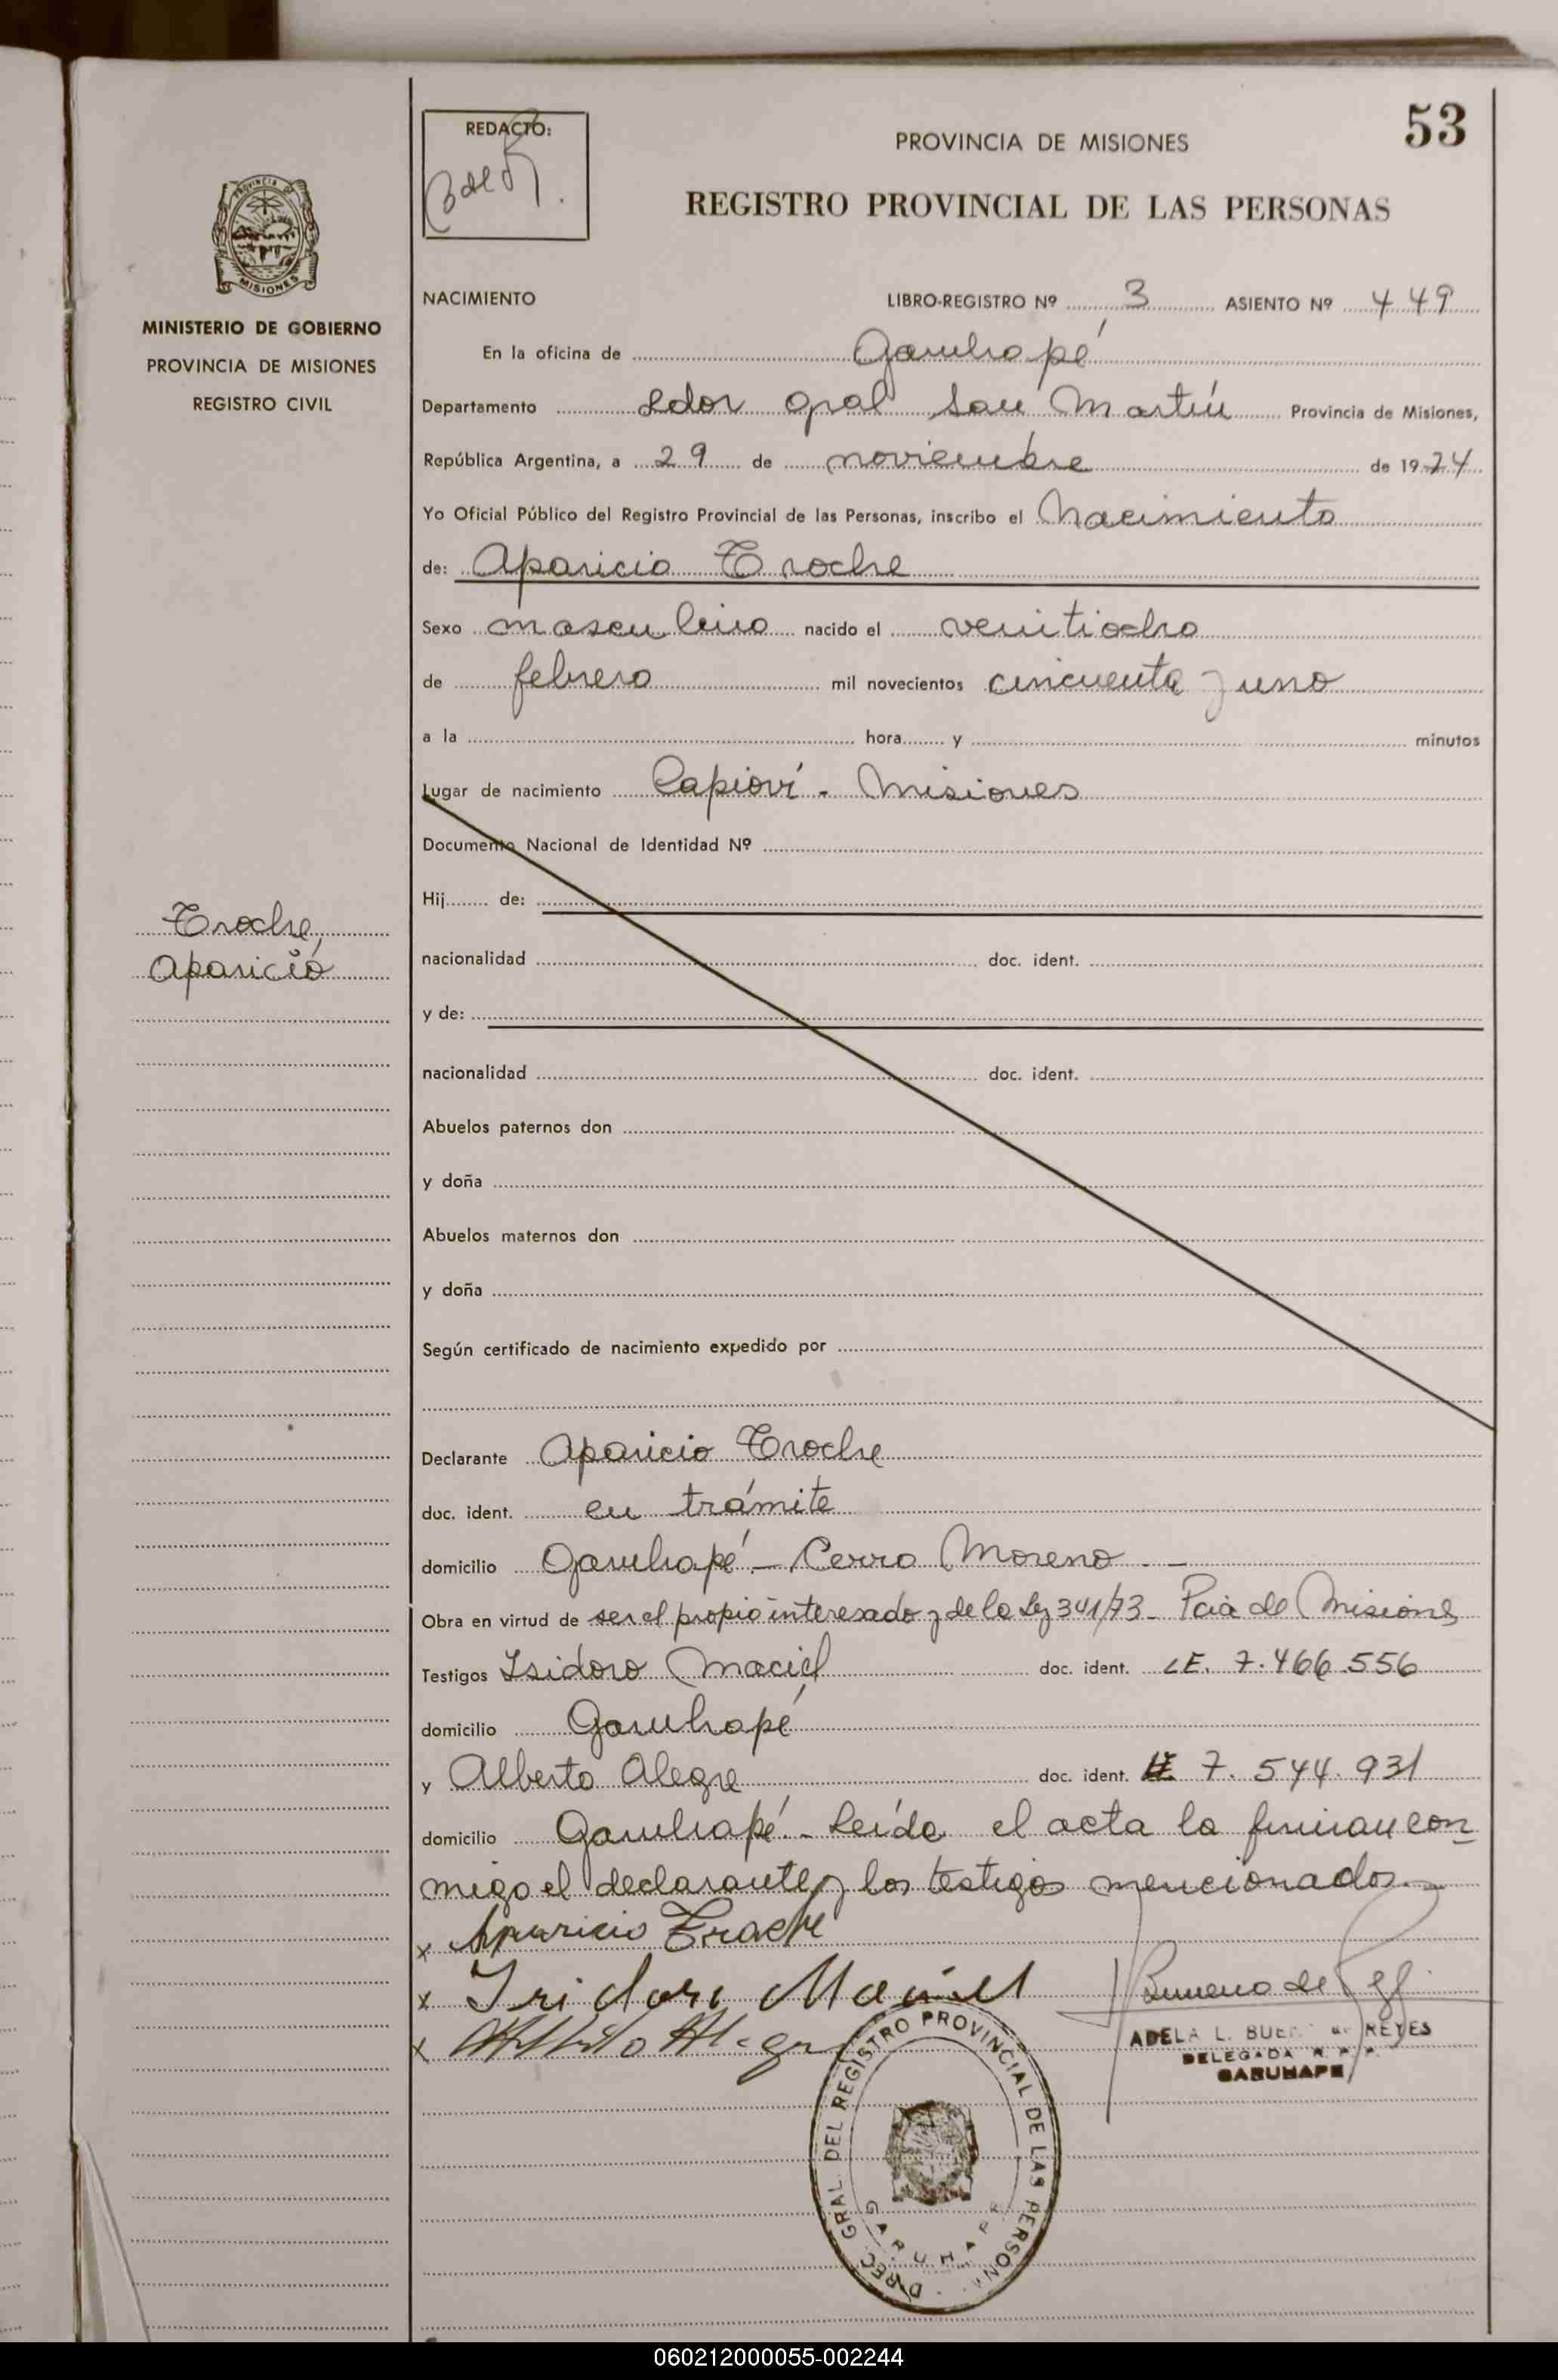 53
REDACTO:
PROVINCIA DE MISIONES
REGISTRO PROVINCIAL DE LAS PERSONAS
PROVINCIA
MISIONES
MINISTERIO DE GOBIERNO
PROVINCIA DE MISIONES
REGISTRO CIVIL
Troche,
Aparicio
NACIMIENTO LIBRO-REGISTRO Nº 3 ASIENTO Nº 449
En la oficina de Garuhapé
Departamento Ldor Gral San Martín Provincia de Misiones,
República Argentina, a 29 de noviembre de 1974
Yo Oficial Público del Registro Provincial de las Personas, inscribo el Nacimiento
de: Aparicio Troche
Sexo masculino nacido el veintiocho
de febrero mil novecientos cincuenta y uno
a la hora y minutos
Lugar de nacimiento Capioví - Misiones
Documento Nacional de Identidad Nº
Hij de:
nacionalidad doc. ident.
y de:
nacionalidad doc. ident.
Abuelos paternos don
y doña
Abuelos maternos don
y doña
Según certificado de nacimiento expedido por
Declarante Aparicio Troche
doc. ident. en trámite
domicilio Garuhapé - Cerro Moreno. -
Obra en virtud de ser el propio interesado y de la Ley 341/73 - Pcia de Misiones
Testigos Isidoro Maciel doc. ident. LE. 7.466.556
domicilio Garuhapé
y Alberto Alegre doc. ident. LE 7.544.931
domicilio Garuhapé. - Leída el acta la firman con-
migo el declarante y los testigos mencionados. -
x Aparicio Troche
x Isidoro Maciel
x Alberto Alegre
ADELA L. BUENO de REYES
DELEGADA R. P. P.
GARUHAPE
DIREC. GRAL. DEL REGISTRO PROVINCIAL DE LAS PERSONAS
GARUHAPE
060212000055-002244